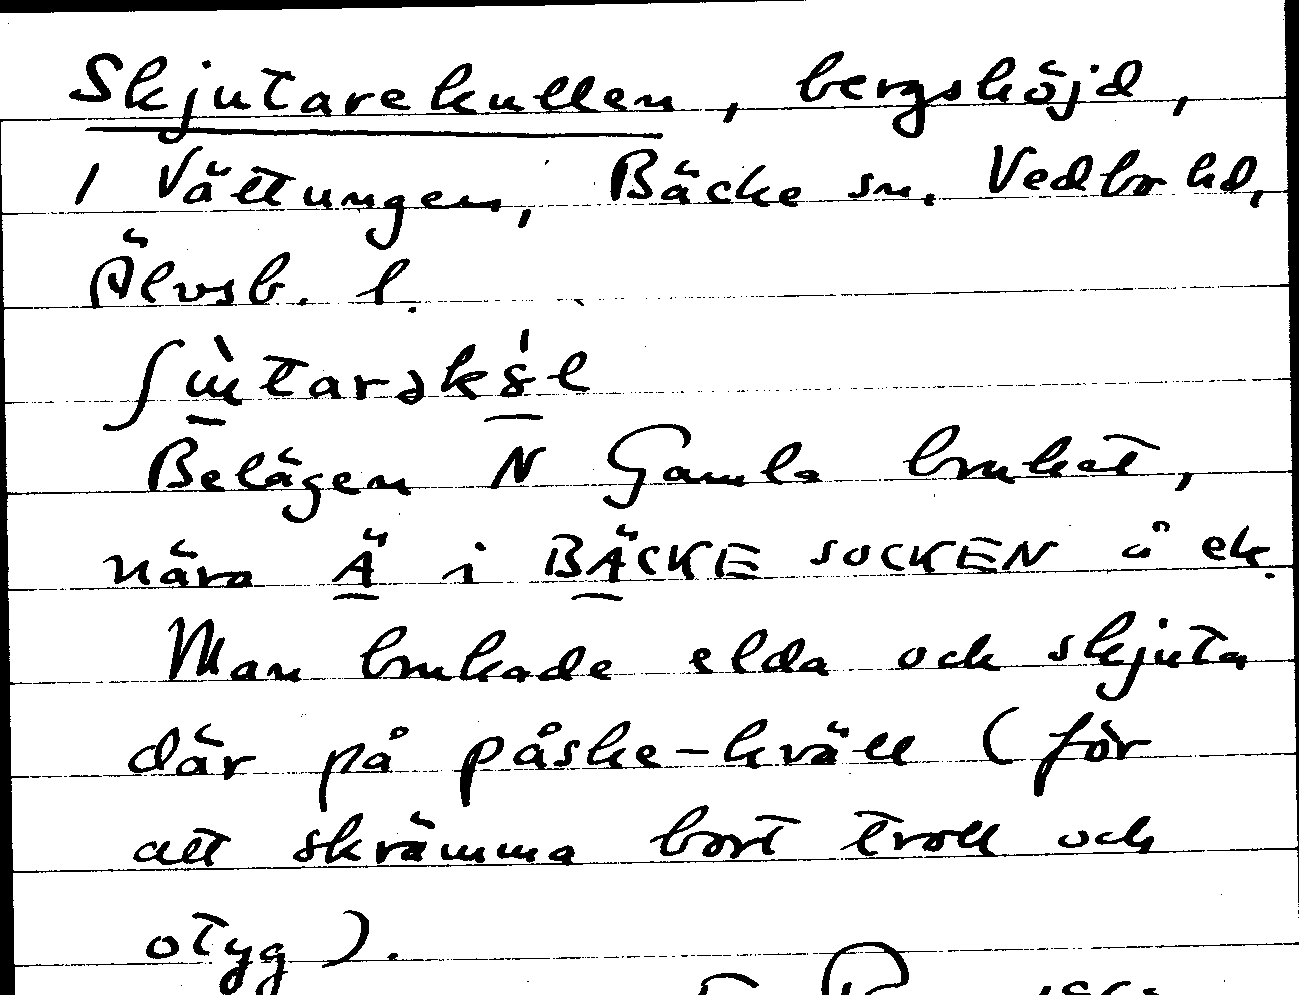 Skjutarekullen, bergshöjd,
1 Vättungen, Bäcke sn. Vedbo hd,
Älvsb. l.
Belägen N Gamla bruket,
nära Ä i BÄCKE SOCKEN å ek.
Man brukade elda och skjuta
där på påske-kväll (för
att skrämma bort troll och
otyg).